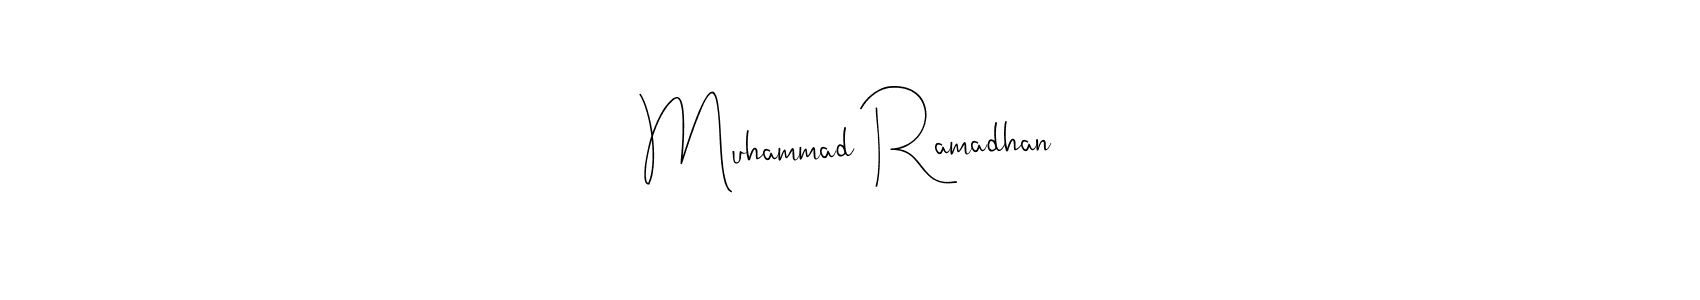 Muhammad Ramadhan